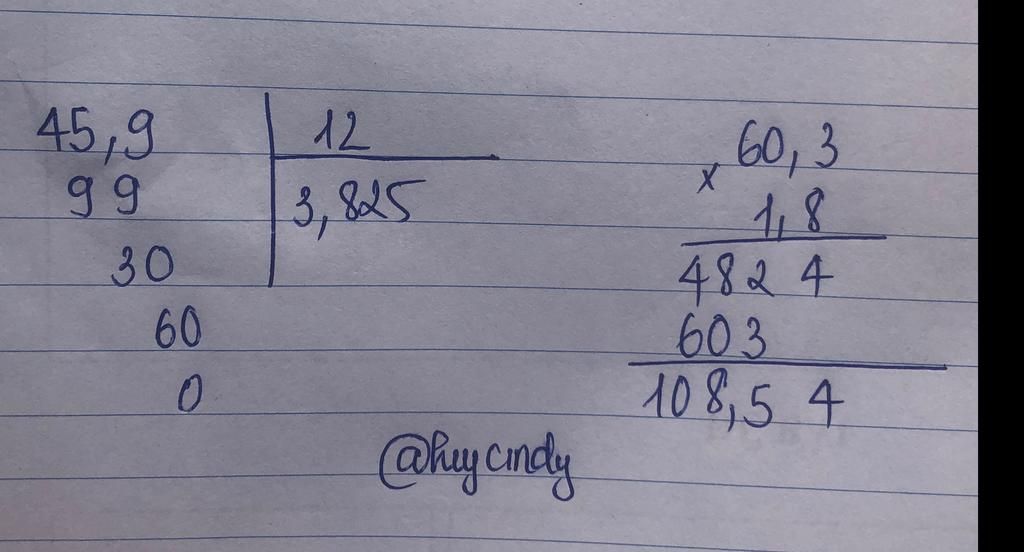 45,9 12
99 3,825
30
60
0
60,3
x
1,8
4824
603
108,54
@huycindy